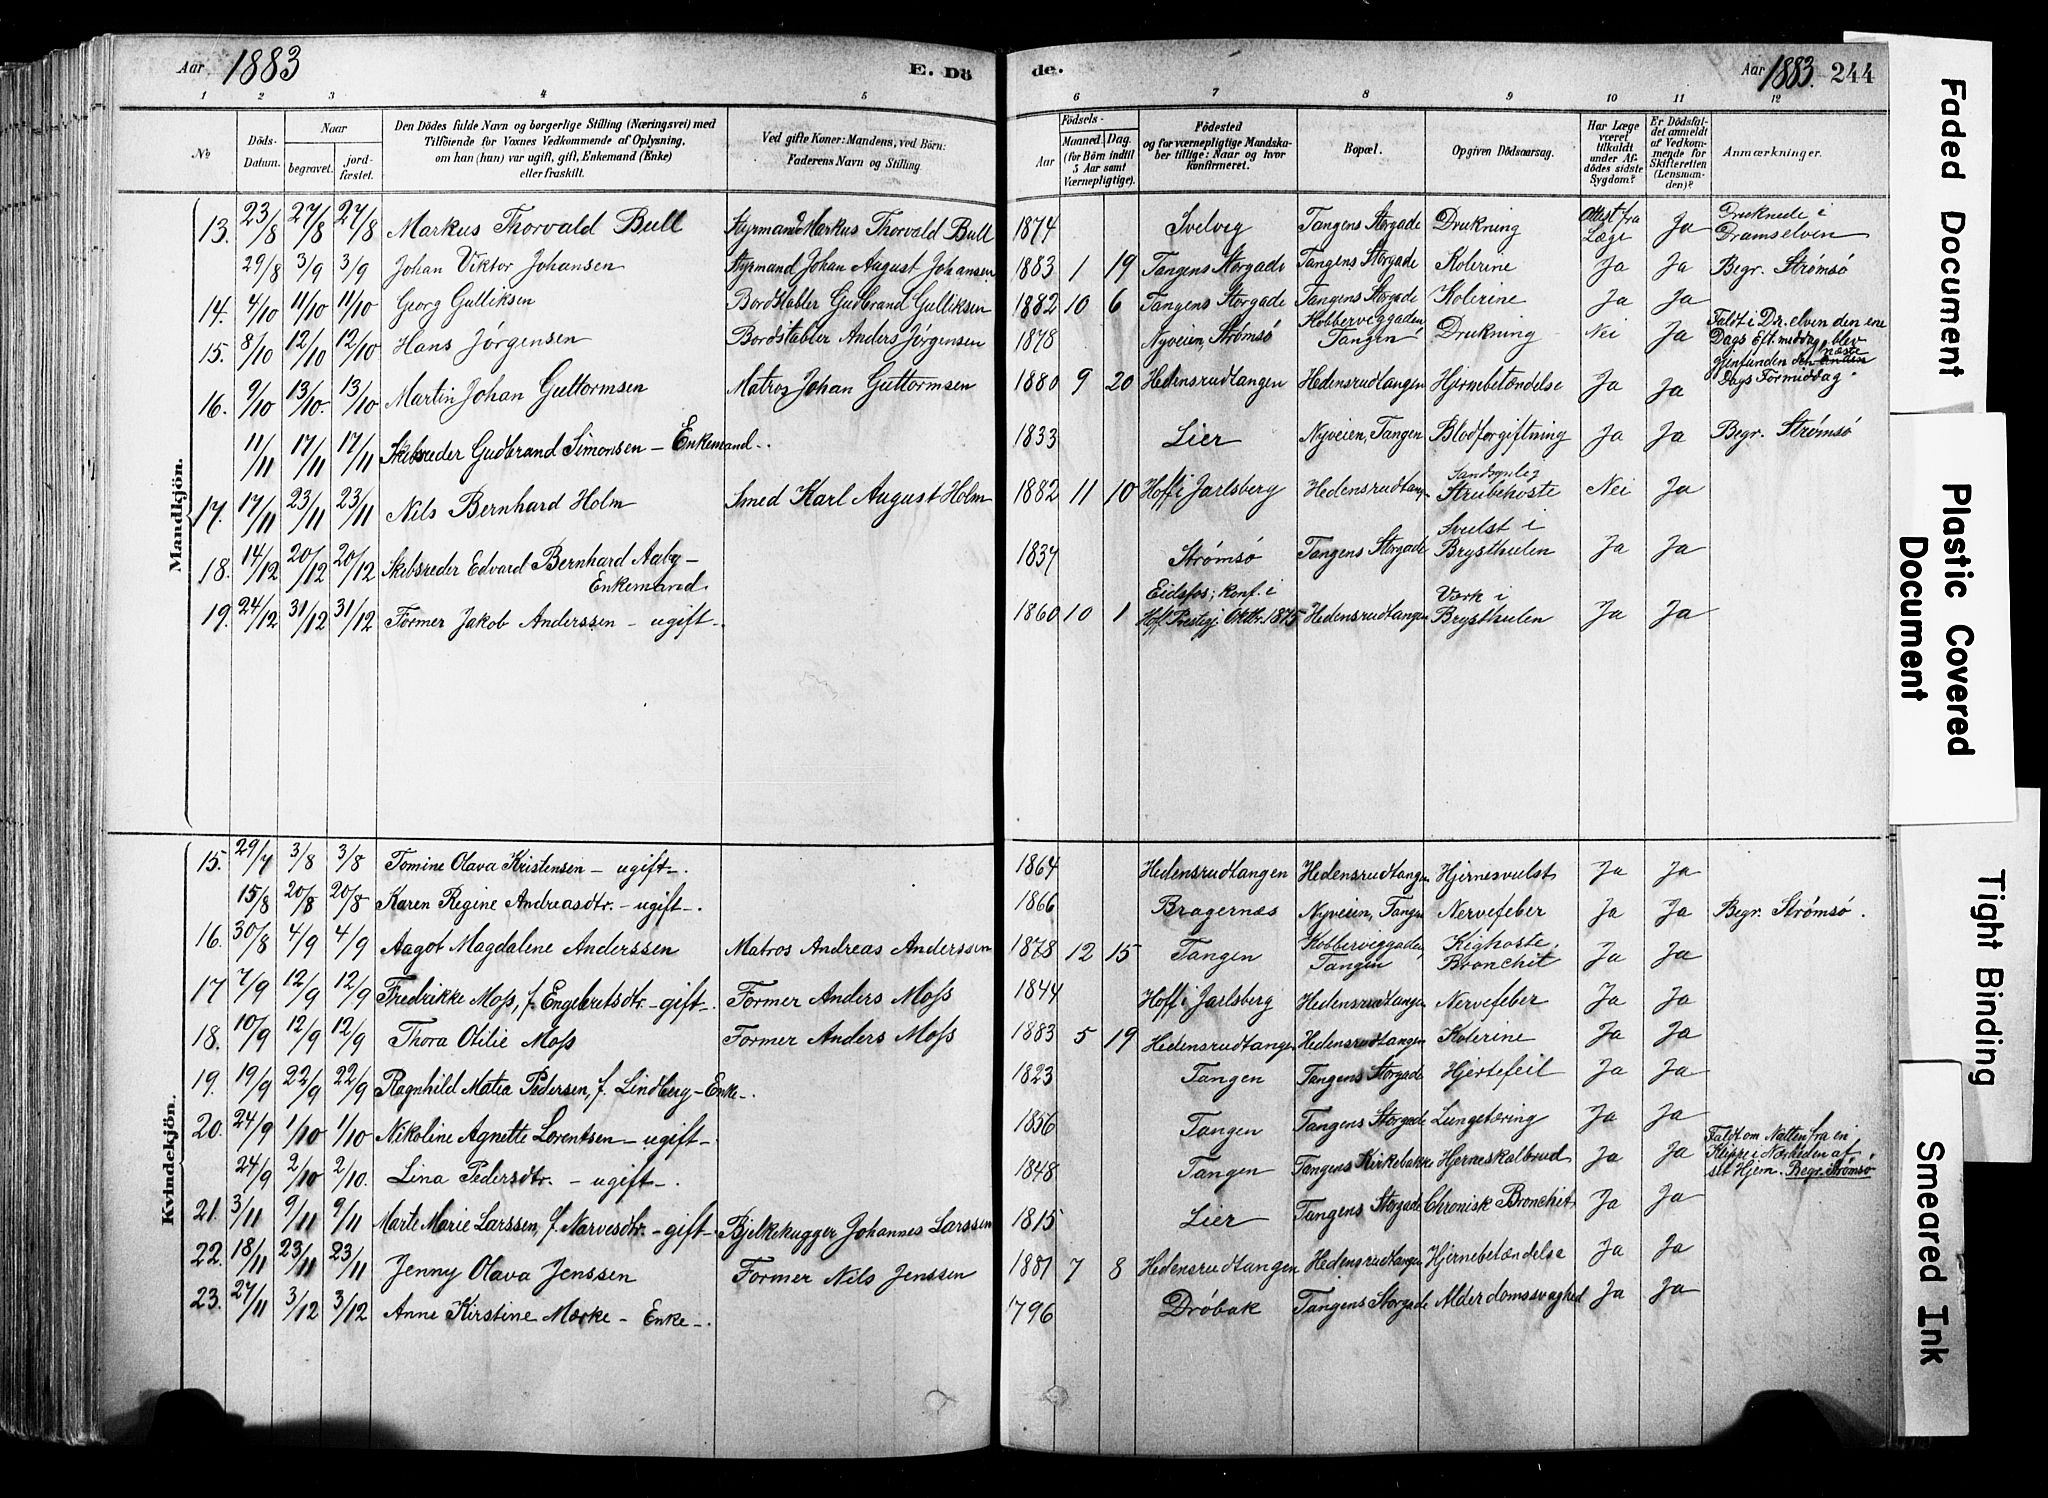 Aar 1883 E. Dö
1 2 3 4 5
No
Döds-
Datum.
Naar
begravet.
jord-
fæstet.
Den Dödes fulde Navn og borgerlige Stilling (Næringsvei) med
Tilföiende for Voxnes Vedkommende af Oplysning,
om han (han) var ugift, gift, Enkemand (Enke)
eller fraskilt.
Ved gifte Koner: Mandens, ved Börn:
Faderens Navn og Stilling.
Mandkjön.
13. 23/8 27/8 27/8 Markus Thorvald Bull Styrmand Markus Thorvald Bull
29/8 3/9 3/9 Johan Viktor Johansen Styrmand Johan August Johansen
14. 4/10 11/10 11/10 Georg Gulliksen Bordstabler Gudbrand Gulliksen
15. 8/10 12/10 12/10 Hans Jørgensen Bordstabler Anders Jørgensen
16. 9/10 13/10. 13/10 Martin Johan Guttormsen Matros Johan Guttormsen
11/11 17/11 17/11 Skibsreder Gudbrand Simonsen – Enkemand –.
17. 17/11 23/11 23/11 Nils Bernhard Holm Smed Karl August Holm
18. 14/12 20/12 20/12 Skibsreder Edvard Bernhard Aaby –
Enkemand
19. 24/12 31/12 31/12 Former Jakob Anderssen – ugift –.
Kvindekjön.
15. 29/7 3/8 3/8 Tomine Olava Kristensen – ugift –.
15/8 20/8 20/8 Karen Regine Andreasdtr. – ugift –.
16. 30/8 4/9 4/9 Aagot Magdalene Anderssen Matros Andreas Anderssen
17 7/9 12/9 12/9 Fredrikke Moss, f. Engebretsdtr. – gift –. Former Anders Moss
18. 10/9 12/9 12/9 Thora Otilie Moss Former Anders Moss
19. 19/9 22/9 22/9 Ragnhild Matia Pedersen, f. Lindberg – Enke –.
20. 24/9 1/10 1/10 Nikoline Agnette Lorentsen – ugift –.
24/9 2/10 2/10. Lina Pedersdtr. – ugift –.
21. 3/11 9/11 9/11 Marte Marie Larssen, f. Narvesdtr. – gift –. Bjelkehugger Johannes Larssen
22. 18/11 23/11 23/11 Jenny Olava Jenssen Former Nils Jenssen
23. 27/11 3/12 3/12 Anne Kirstine Mørke – Enke –.
de. Aar 1883. 244
6 7 8 9 10 11 12
Aar
Födsels-
Maaned. Dag.
(for Börn indtil
5 Aar samt
Værnepligtige).
Födested
og for værnepligtige Mandska-
ber tillige: Naar og hvor
konfirmeret.
Bopæl.
Opgiven Dödsaarsag.
Har Læge
været
tilkaldt
under Af-
dödes sidste
Sygdom?
Er Dödsfal-
det anmeldt
af Vedkom-
mende for
Skifteretten
(Lensman-
den)?
Anmærkninger.
1874 Svelvig Tangens Storgade Drukning Attest fra
Læge Ja Druknede i
Dramselven
1883 1 19 Tangens Storgade Tangens Storgade Kolerine Ja Ja Begr. Strømsø
1882 10 6 Tangens Storgade Tangens Storgade Kolerine Ja Ja
1878 Nyveien, Strømsø Kobberviggaden,
Tangen Drukning Nei Ja Faldt i Dr. elven den ene
Dags Eft.middag, blev
gjenfunden den anden
næste
Dags Formiddag.
1880 9 20 Hedensrudtangen Hedensrudtangen Hjernebetændelse Ja Ja
1833 Lier Nyveien, Tangen Blodforgiftning Ja Ja Begr. Strømsø
1882 11 10 Hoff i Jarlsberg Hedensrudtang- Sandsynlig
Strubehoste Nei Ja
1837 Strømsø Tangens Storgade Svulst i
Brysthulen Ja Ja
1860 10 1 Eidsfos; konf. i
Hoff Prestegj. Oktbr. 1875 Hedensrudtangen Værk i
Brysthulen Ja Ja
1864 Hedensrudtangen Hedensrudtangen Hjernesvulst Ja Ja
1866 Bragernæs Nyveien, Tangen Nervefeber Ja Ja Begr. Strømsø.
1878 12 15 Tangen Kobberviggaden,
Tangen Kighoste,
Bronchit Ja Ja
1844 Hoff i Jarlsberg Hedensrudtangen Nervefeber Ja Ja
1883 5 19 Hedensrudtangen Hedensrudtangen Kolerine Ja Ja
1823 Tangen Tangens Storgade Hjertefeil Ja Ja
1856 Tangen Tangens Storgade Lungetæring Ja Ja
1848 Tangen Tangens Kirkebakke Hjerneskalbrud Ja Ja Faldt om Natten fra en
Klippe i Nærheden af
sit Hjem. Begr. Strømsø
1815 Lier Tangens Storgade Chronisk Bronchit Ja Ja
1881 7 8 Hedensrudtangen Hedensrudtangen Hjernebetændelse Ja Ja
1796 Drøbak Tangens Storgade Alderdomssvaghed Ja Ja
Faded Document
Plastic Covered
Document
Tight Binding
Smeared Ink